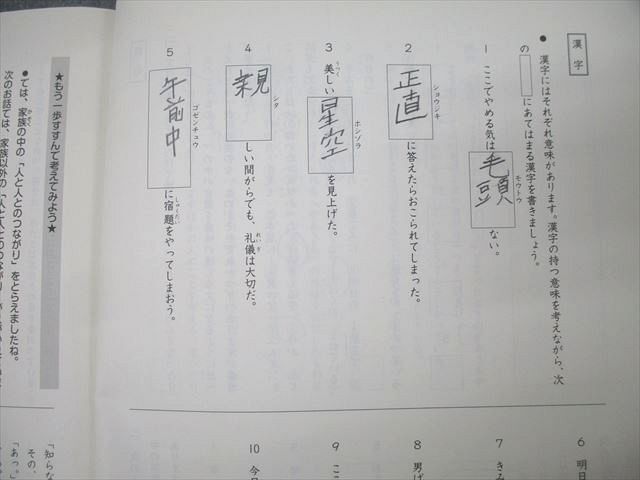 漢字
● 漢字にはそれぞれ意味があります。漢字の持つ意味を考えながら、次
の　にあてはまる漢字を書きましょう。
1 ここでやめる気は毛頭ない。
モウトウ
2 正直に答えたらおこられてしまった。
ショウジキ
3 美しい星空を見上げた。
うつく
ホシゾラ
4 親しい間がらでも、礼儀は大切だ。
シタ
れいぎ
5 午前中に宿題をやってしまおう。
ゴゼンチュウ
しゅくだい
6 明日
7 きみ
8 男げ
9 ここ
10 今日
★もう一歩すすんで考えてみよう★
●では、家族の中の「人と人とのつながり」をとらえましたね。
かぞく
次のお話では、家族以外の「人と人とのつながり
「知らな
その、
「あっ。